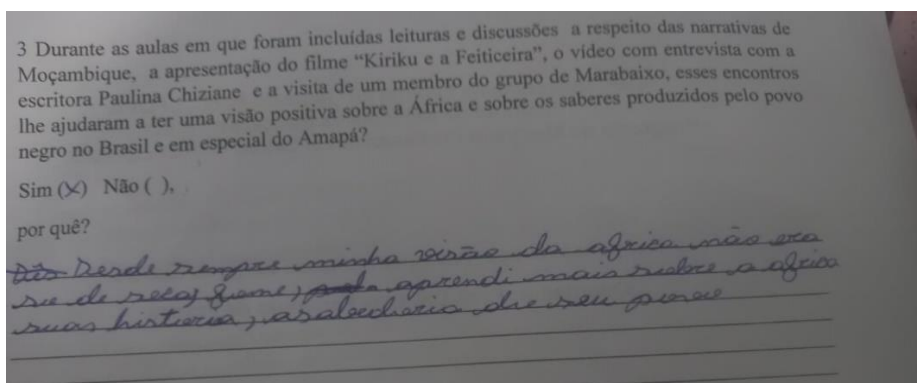 3 Durante as aulas em que foram incluídas leituras e discussões a respeito das narrativas de
Moçambique, a apresentação do filme “Kiriku e a Feiticeira”, o vídeo com entrevista com a
escritora Paulina Chiziane e a visita de um membro do grupo de Marabaixo, esses encontros
lhe ajudaram a ter uma visão positiva sobre a África e sobre os saberes produzidos pelo povo
negro no Brasil e em especial do Amapá?
Sim (X) Não ( ),
por quê?
Desde sempre minha visão da africa não era
so de seca, fome, aprendi mais sobre a africa
suas historia, a sabedoria de seu povo